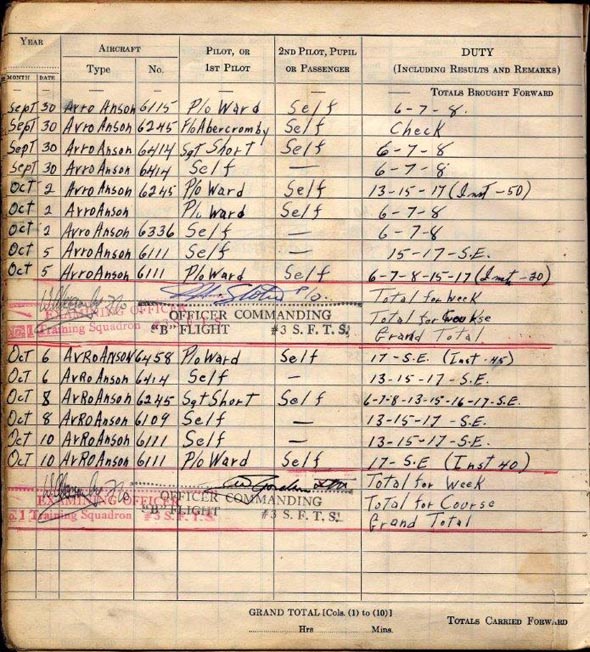 YEAR AIRCRAFT PILOT, OR 2ND PILOT, PUPIL DUTY
MONTH DATE Type No. 1ST PILOT OR PASSENGER (INCLUDING RESULTS AND REMARKS)
— — — — — — — TOTALS BROUGHT FORWARD
Sept 30 Avro Anson 6115 P/o Ward Self 6-7-8.
Sept 30 Avro Anson 6245 F/o Abercromby Self Check
Sept 30 Avro Anson 6414 Sgt Short Self 6-7-8
Sept 30 Avro Anson 6414 Self — 6-7-8
Oct 2 Avro Anson 6245 P/o Ward Self 13-15-17 (Inst-50)
Oct 2 Avro Anson P/o Ward Self 6-7-8
Oct 2 Avro Anson 6336 Self — 6-7-8
Oct 5 Avro Anson 6111 Self — 15-17-S.E.
Oct 5 Avro Anson 6111 P/o Ward Self 6-7-8-15-17 (Inst-20)
Total for Week
EXAMINING OFFICER OFFICER COMMANDING Total for Course
Training Squadron "B" FLIGHT #3 S. F. T. S. Grand Total
Oct 6 Avro Anson 6458 P/o Ward Self 17-S.E. (Inst-45)
Oct 6 Avro Anson 6414 Self — 13-15-17-S.E.
Oct 8 Avro Anson 6245 Sgt Short Self 6-7-8-13-15-16-17-S.E.
Oct 8 Avro Anson 6109 Self — 13-15-17-S.E.
Oct 10 Avro Anson 6111 Self — 13-15-17-S.E.
Oct 10 Avro Anson 6111 P/o Ward Self 17-S.E (Inst 40)
Total for Week
EXAMINING OFFICER OFFICER COMMANDING Total for Course
1 Training Squadron #3 S.F.T.S. "B" FLIGHT #3 S. F. T. S. Grand Total
GRAND TOTAL [Cols. (1) to (10)]
Hrs. Mins. TOTALS CARRIED FORWARD